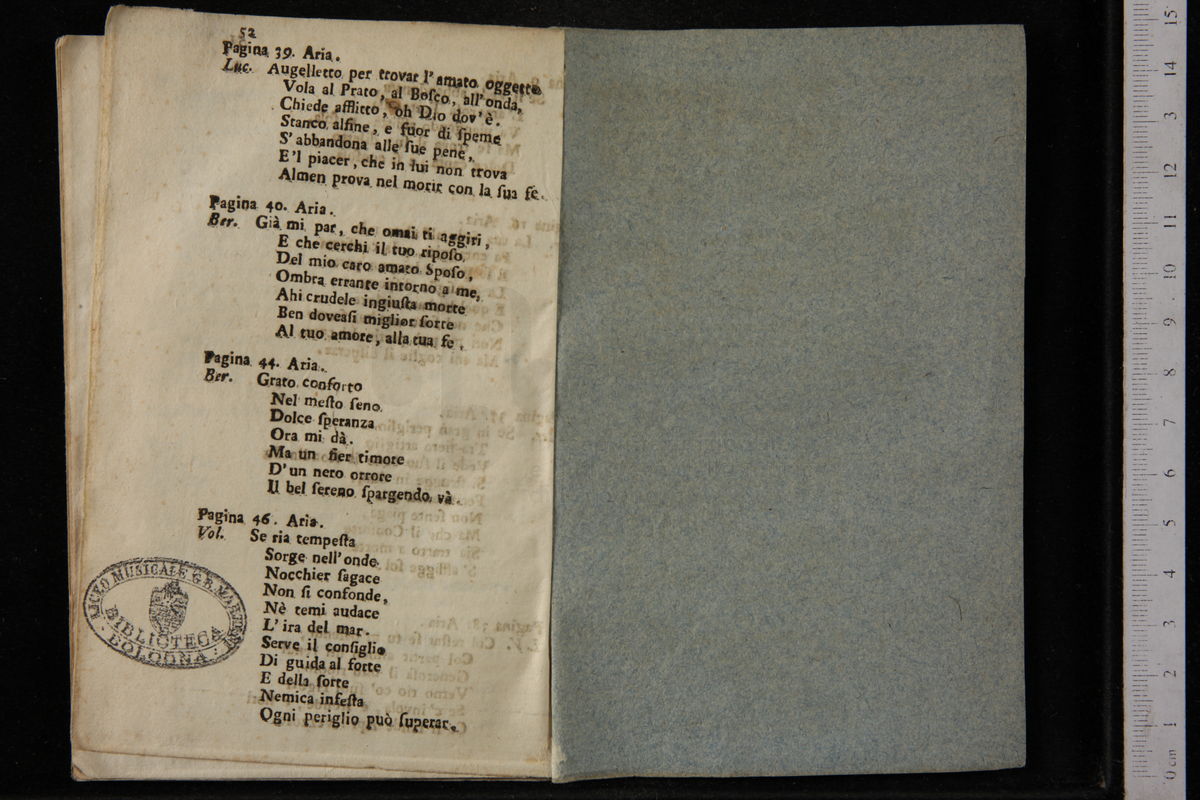 52
Pagina 39. Aria.
Luc. Augelletto per trovar l'amato oggetto
Vola al Prato, al Boſco, all'onda,
Chiede afflitto, oh Dio dov'è.
Stanco alfine, e fuor di ſpeme
S'abbandona alle ſue pene,
E'l piacer, che in lui non trova
Almen prova nel morir con la ſua fè.
Pagina 40. Aria.
Ber. Già mi par, che omai ti aggiri,
E che cerchi il tuo ripoſo,
Del mio caro amato Spoſo,
Ombra errante intorno a me,
Ahi crudele ingiuſta morte
Ben doveaſi miglior ſorte
Al tuo amore, alla tua fe.
Pagina 44. Aria.
Ber. Grato conforto
Nel meſto ſeno
Dolce ſperanza
Ora mi dà.
Ma un fier timore
D'un nero orrore
Il bel ſereno ſpargendo và.
Pagina 46. Aria.
Vol. Se ria tempeſta
Sorge nell'onde
Nocchier ſagace
Non ſi confonde,
Nè temi audace
L'ira del mar.
Serve il conſiglio
Di guida al forte
E della ſorte
Nemica infeſta
Ogni periglio può ſuperar.
LICEO MUSICALE G.B. MARTINI
BIBLIOTECA
BOLOGNA
15
14
13
12
11
10
9
8
7
6
5
4
3
2
1
0 cm